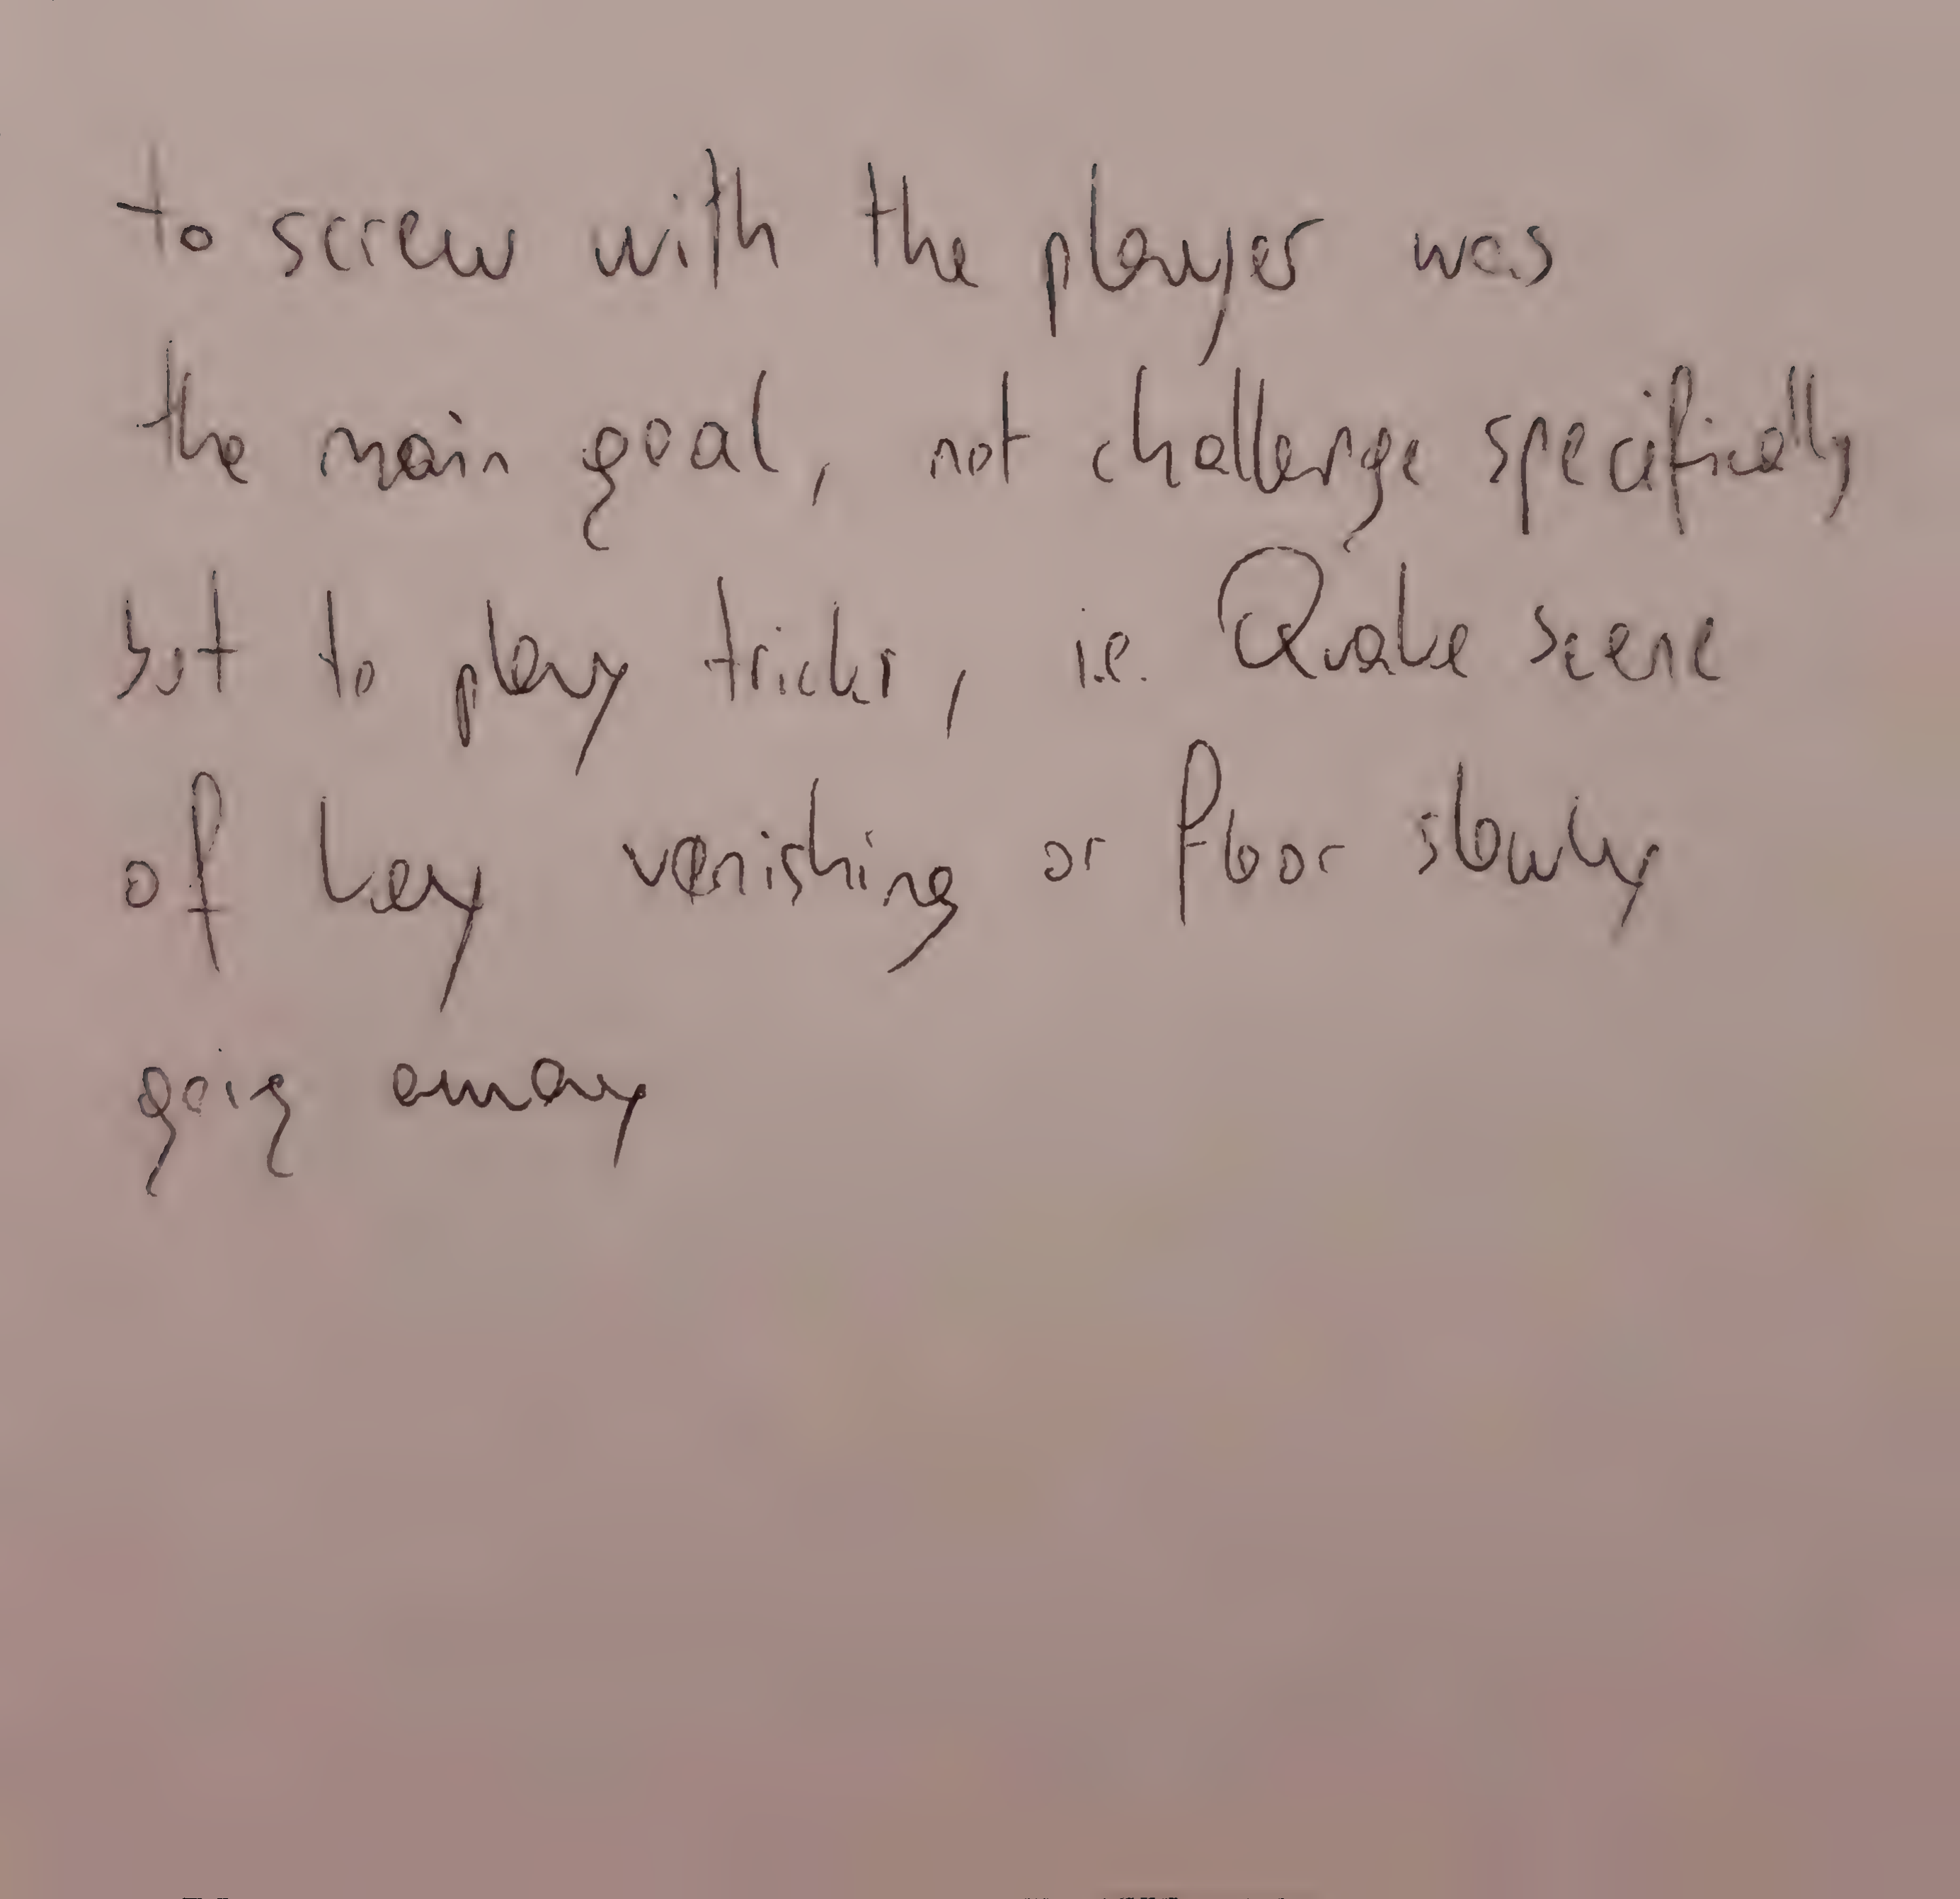 to screw with the player was
the main goal, not challenge specifically
but to play tricks, i.e. Quake scene
of key vanishing or floor slowly
going away